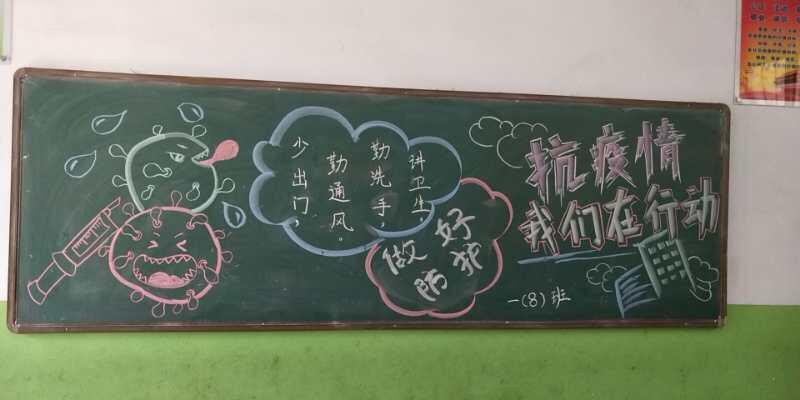 少出门，
勤通风。
勤洗手，
讲卫生
做好
防护
抗疫情
我们在行动
一(8)班